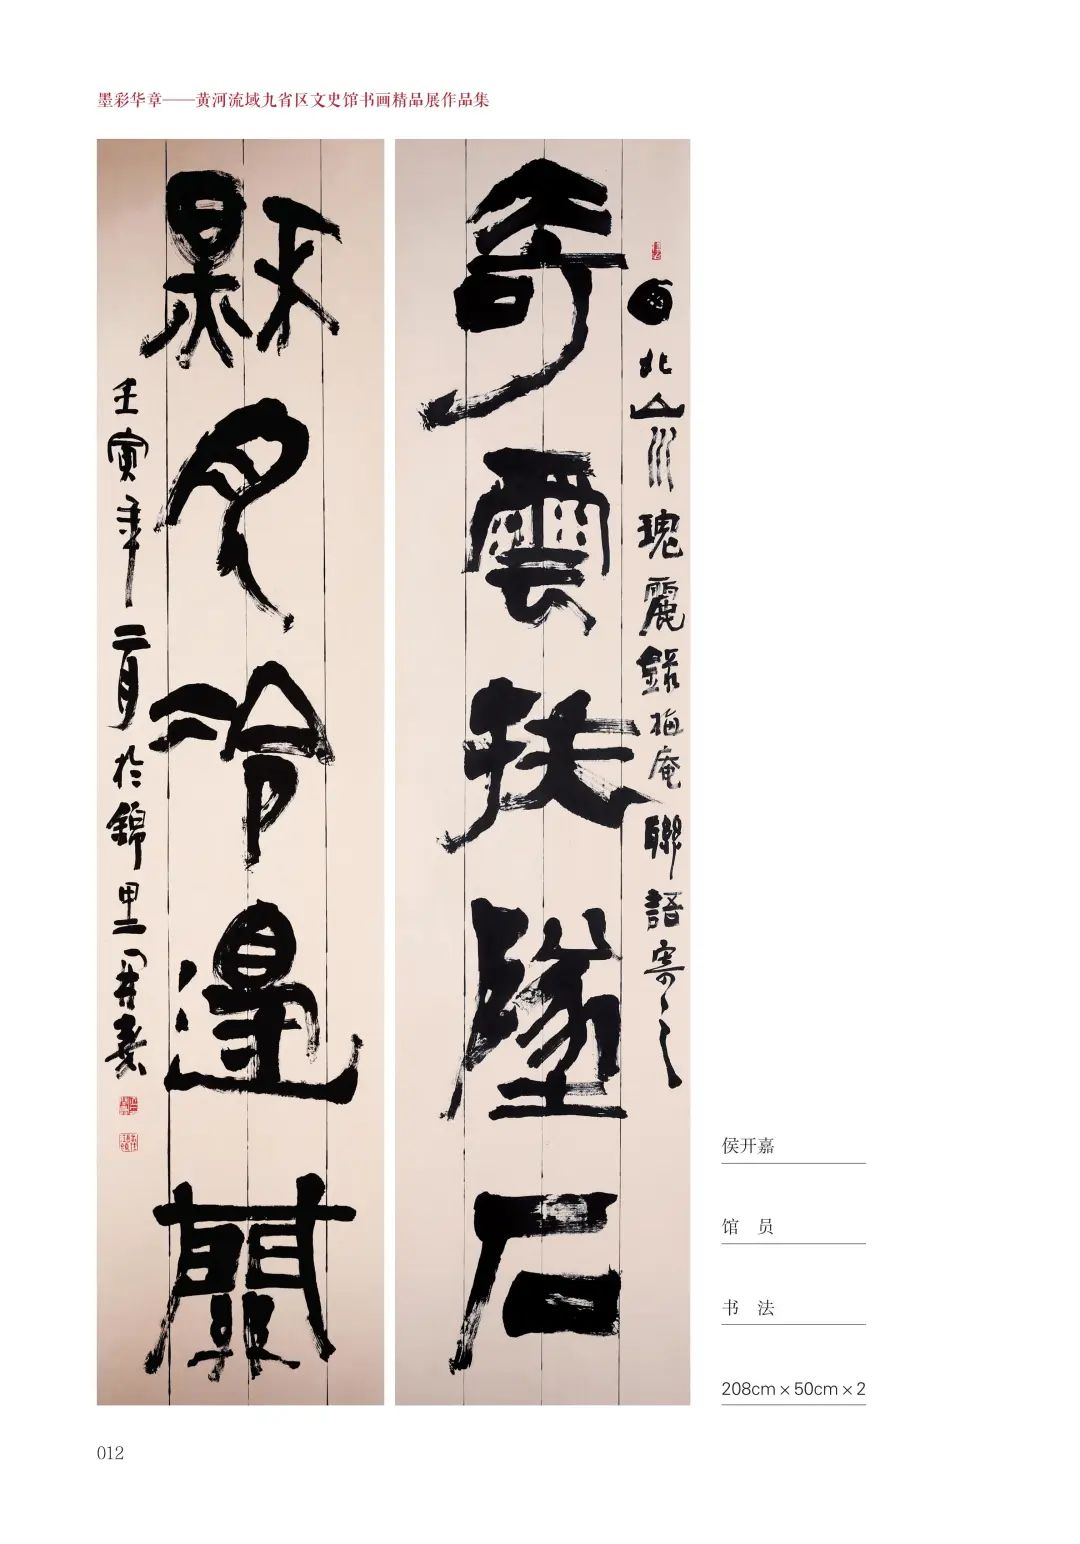 墨彩华章——黄河流域九省区文史馆书画精品展作品集
西北山川瑰麗錄梅庵聯語寄之
奇雲扶墜石
秋月冷邊關
壬寅年二月於錦里開嘉
侯开嘉
馆 员
书 法
208cm×50cm×2
012